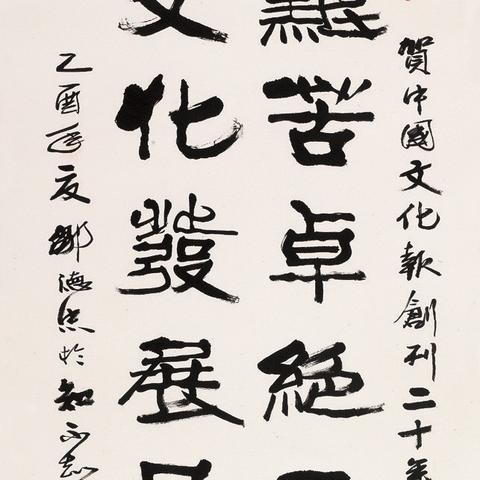 賀中國文化報創刊二十年
艱苦卓絕
文化發展
乙酉年夏鄒德忠於知不知